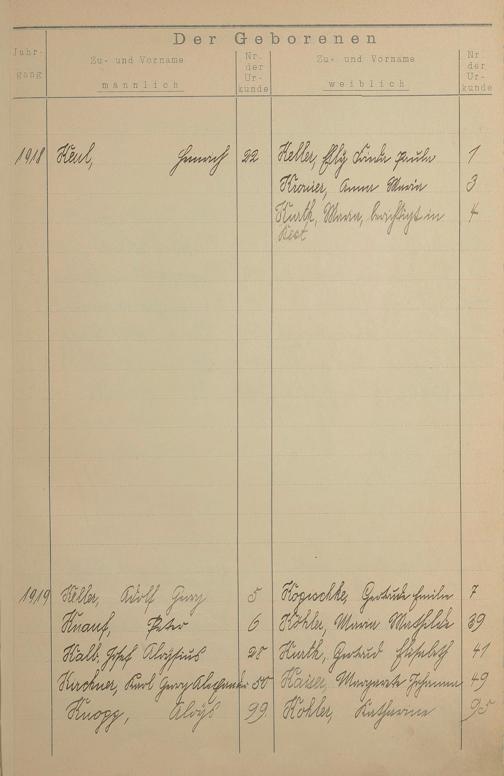 Der Geborenen
Jahr-
gang
Zu- und Vorname
männlich
Nr.
der
Ur-
kunde
Zu- und Vorname
weiblich
Nr.
der
Ur-
kunde
1918 Keul, Heinrich 22 Keller, Elly Linda Paula 1
Kremer, Anna Maria 3
Kurth, Maria, berichtigt in 4
1919 Keller, Adolf Georg 5 Kogischke, Gertrude Emilie 7
Knauf, Peter 6 Köhler, Maria Mathilde 39
Kalb, Josef Aloysius 28 Kurth, Gertrud Elisabeth 41
Kirchner, Karl Georg Alexander 50 Kaiser, Margareta Johanna 49
Knogg, Aloys 99 Kohler, Katharina 95